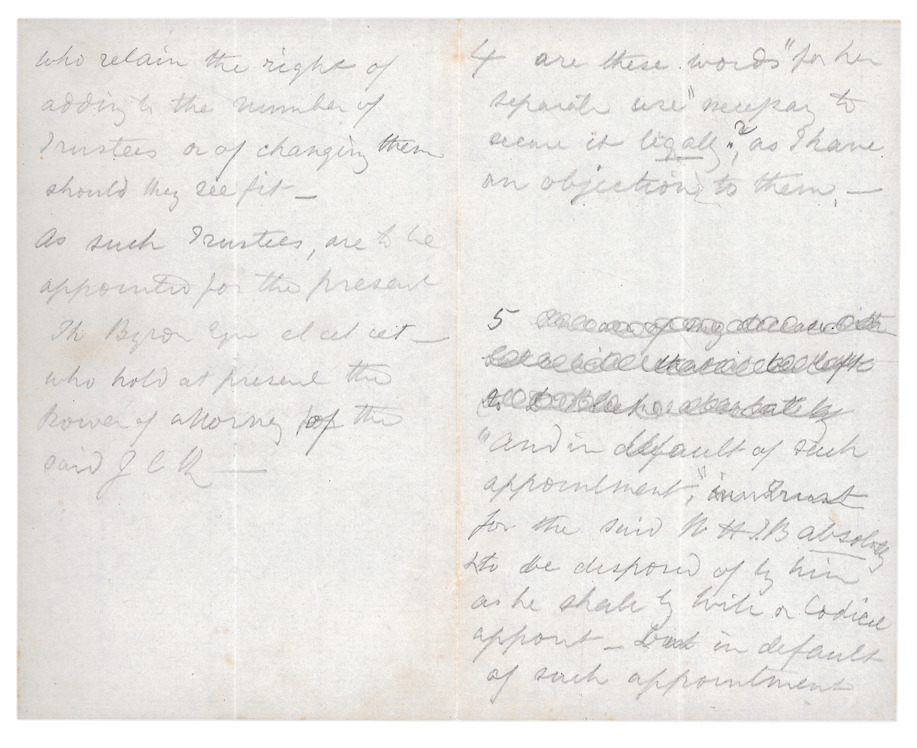 who retain the right of
adding to the number of
Trustees or of changing them
should they see fit —
As such Trustees, are to be
appointed for the present
Th Byron Esqre et cet cet —
who hold at present the
Power of attorney of the
said J C
4 are these words "for her
separate use" necessary to
secure it legally?, as I have
an objection to them. —
5
"and in default of such
appointment", in Trust
for the said W H I B absolutely
to be disposed of by him
as he shall by Will or Codicil
appoint — but in default
of such appointment